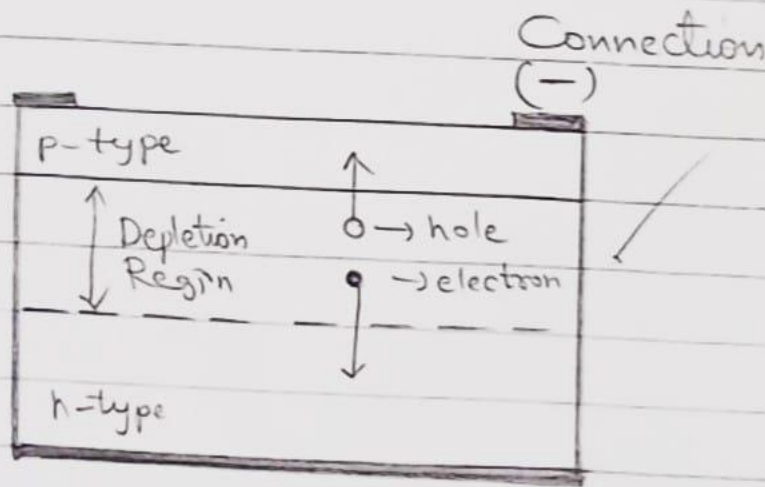 Connection
(-)
p-type
Depletion
Regin
→ hole
→ electron
n-type